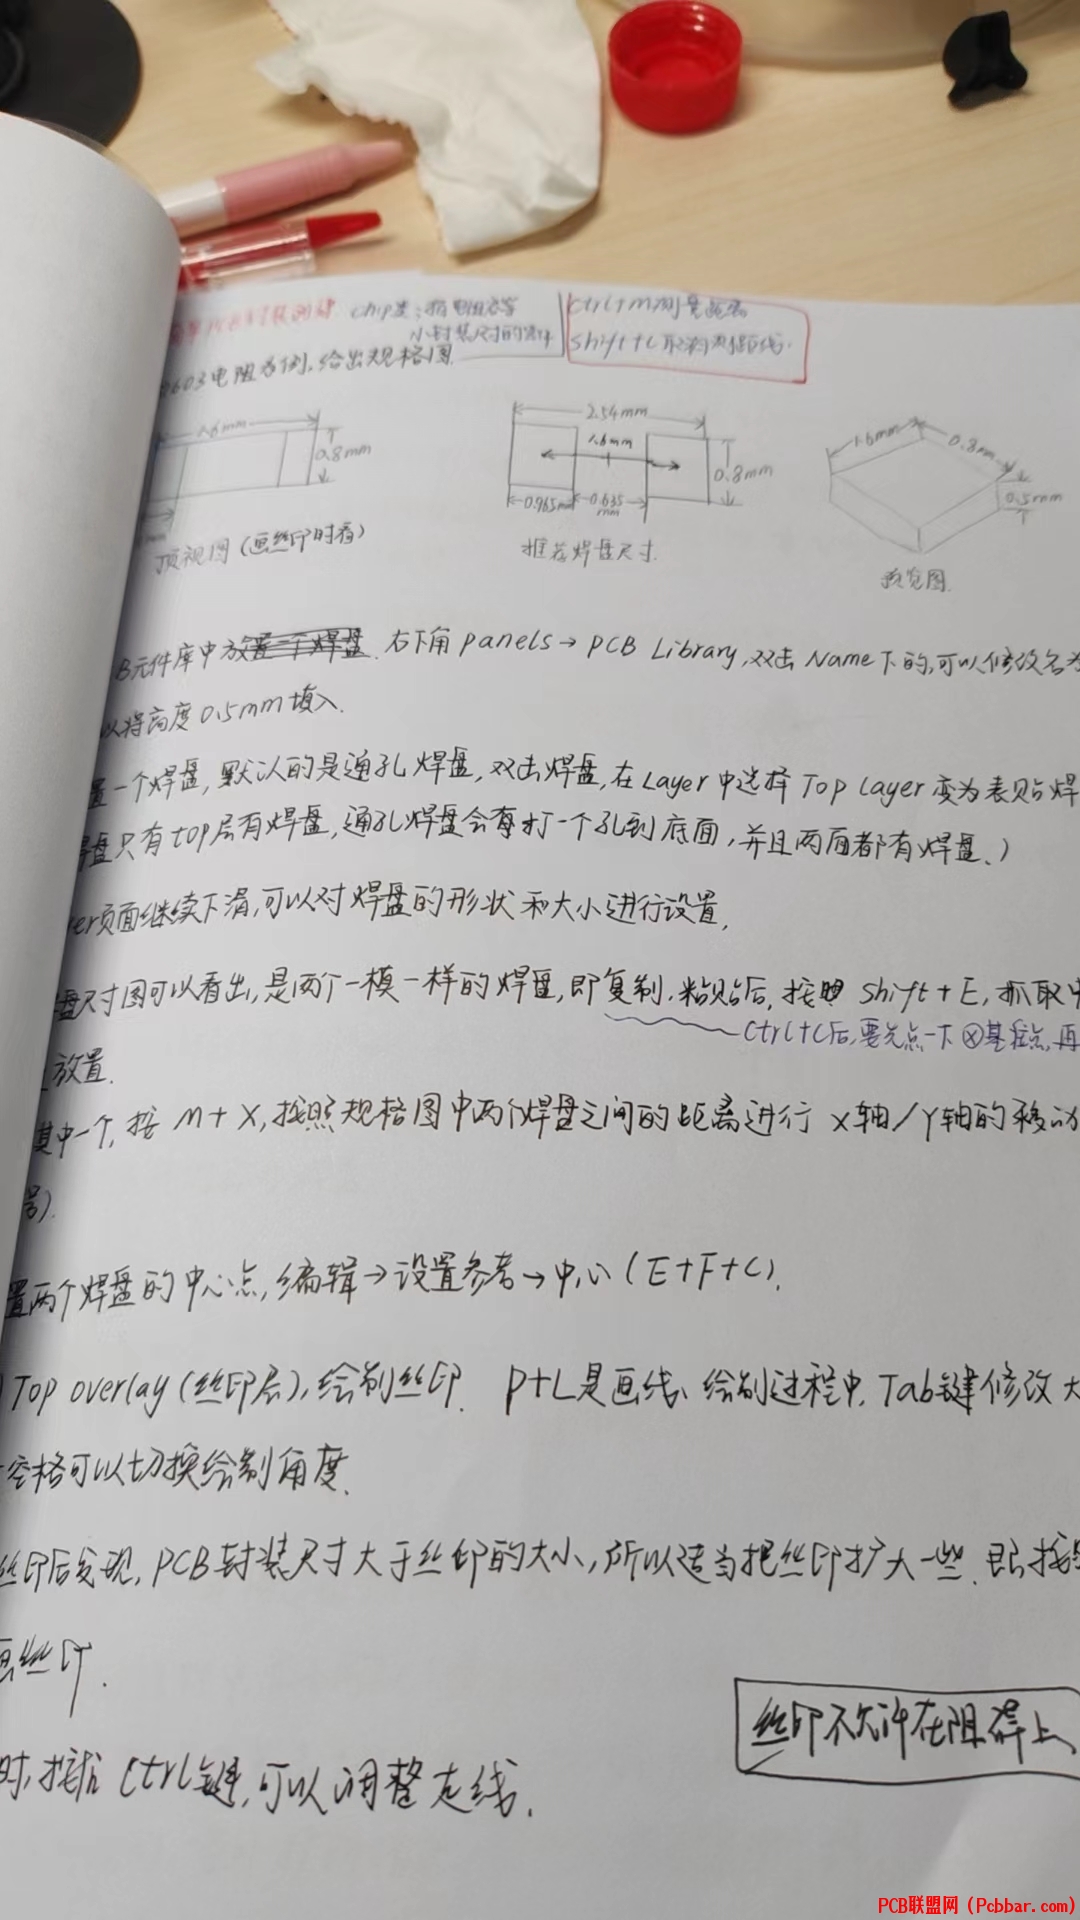 chip类：指电阻容等
小封装尺寸的器件
Ctrl+M测量距离
Shift+C取消测量线.
0603电阻为例,给出规格图.
1.6mm
0.8mm
顶视图(画丝印时看)
2.54mm
1.6mm
0.8mm
0.965mm
0.635
mm
推荐焊盘尺寸.
1.6mm
0.8mm
0.5mm
预览图.
B元件库中放置一个焊盘.右下角panels→PCB Library,双击Name下的,可以修改名为
以将高度0.5mm填入.
置一个焊盘,默认的是通孔焊盘,双击焊盘,在Layer中选择Top Layer变为表贴焊
焊盘只有top层有焊盘,通孔焊盘会打一个孔到底面,并且两面都有焊盘.)
er页面继续下滑,可以对焊盘的形状和大小进行设置.
盘尺寸图可以看出,是两个一模一样的焊盘,即复制.粘贴后,按照Shift+E,抓取中
Ctrl+C后,要先点一下⊗基准点,再
放置.
其中一个,按M+X,按照规格图中两个焊盘之间的距离进行X轴/Y轴的移动
号).
置两个焊盘的中心点,编辑→设置参考→中心(E+F+C).
Top overlay(丝印层),绘制丝印. P+L是画线、绘制过程中,Tab键修改大
空格可以切换绘制角度.
丝印后发现,PCB封装尺寸大于丝印的大小,所以适当把丝印扩大一些.即按照
画丝印.
丝印不允许在阻焊上
时,按住Ctrl键,可以调整走线.
PCB联盟网（Pcbbar.com）